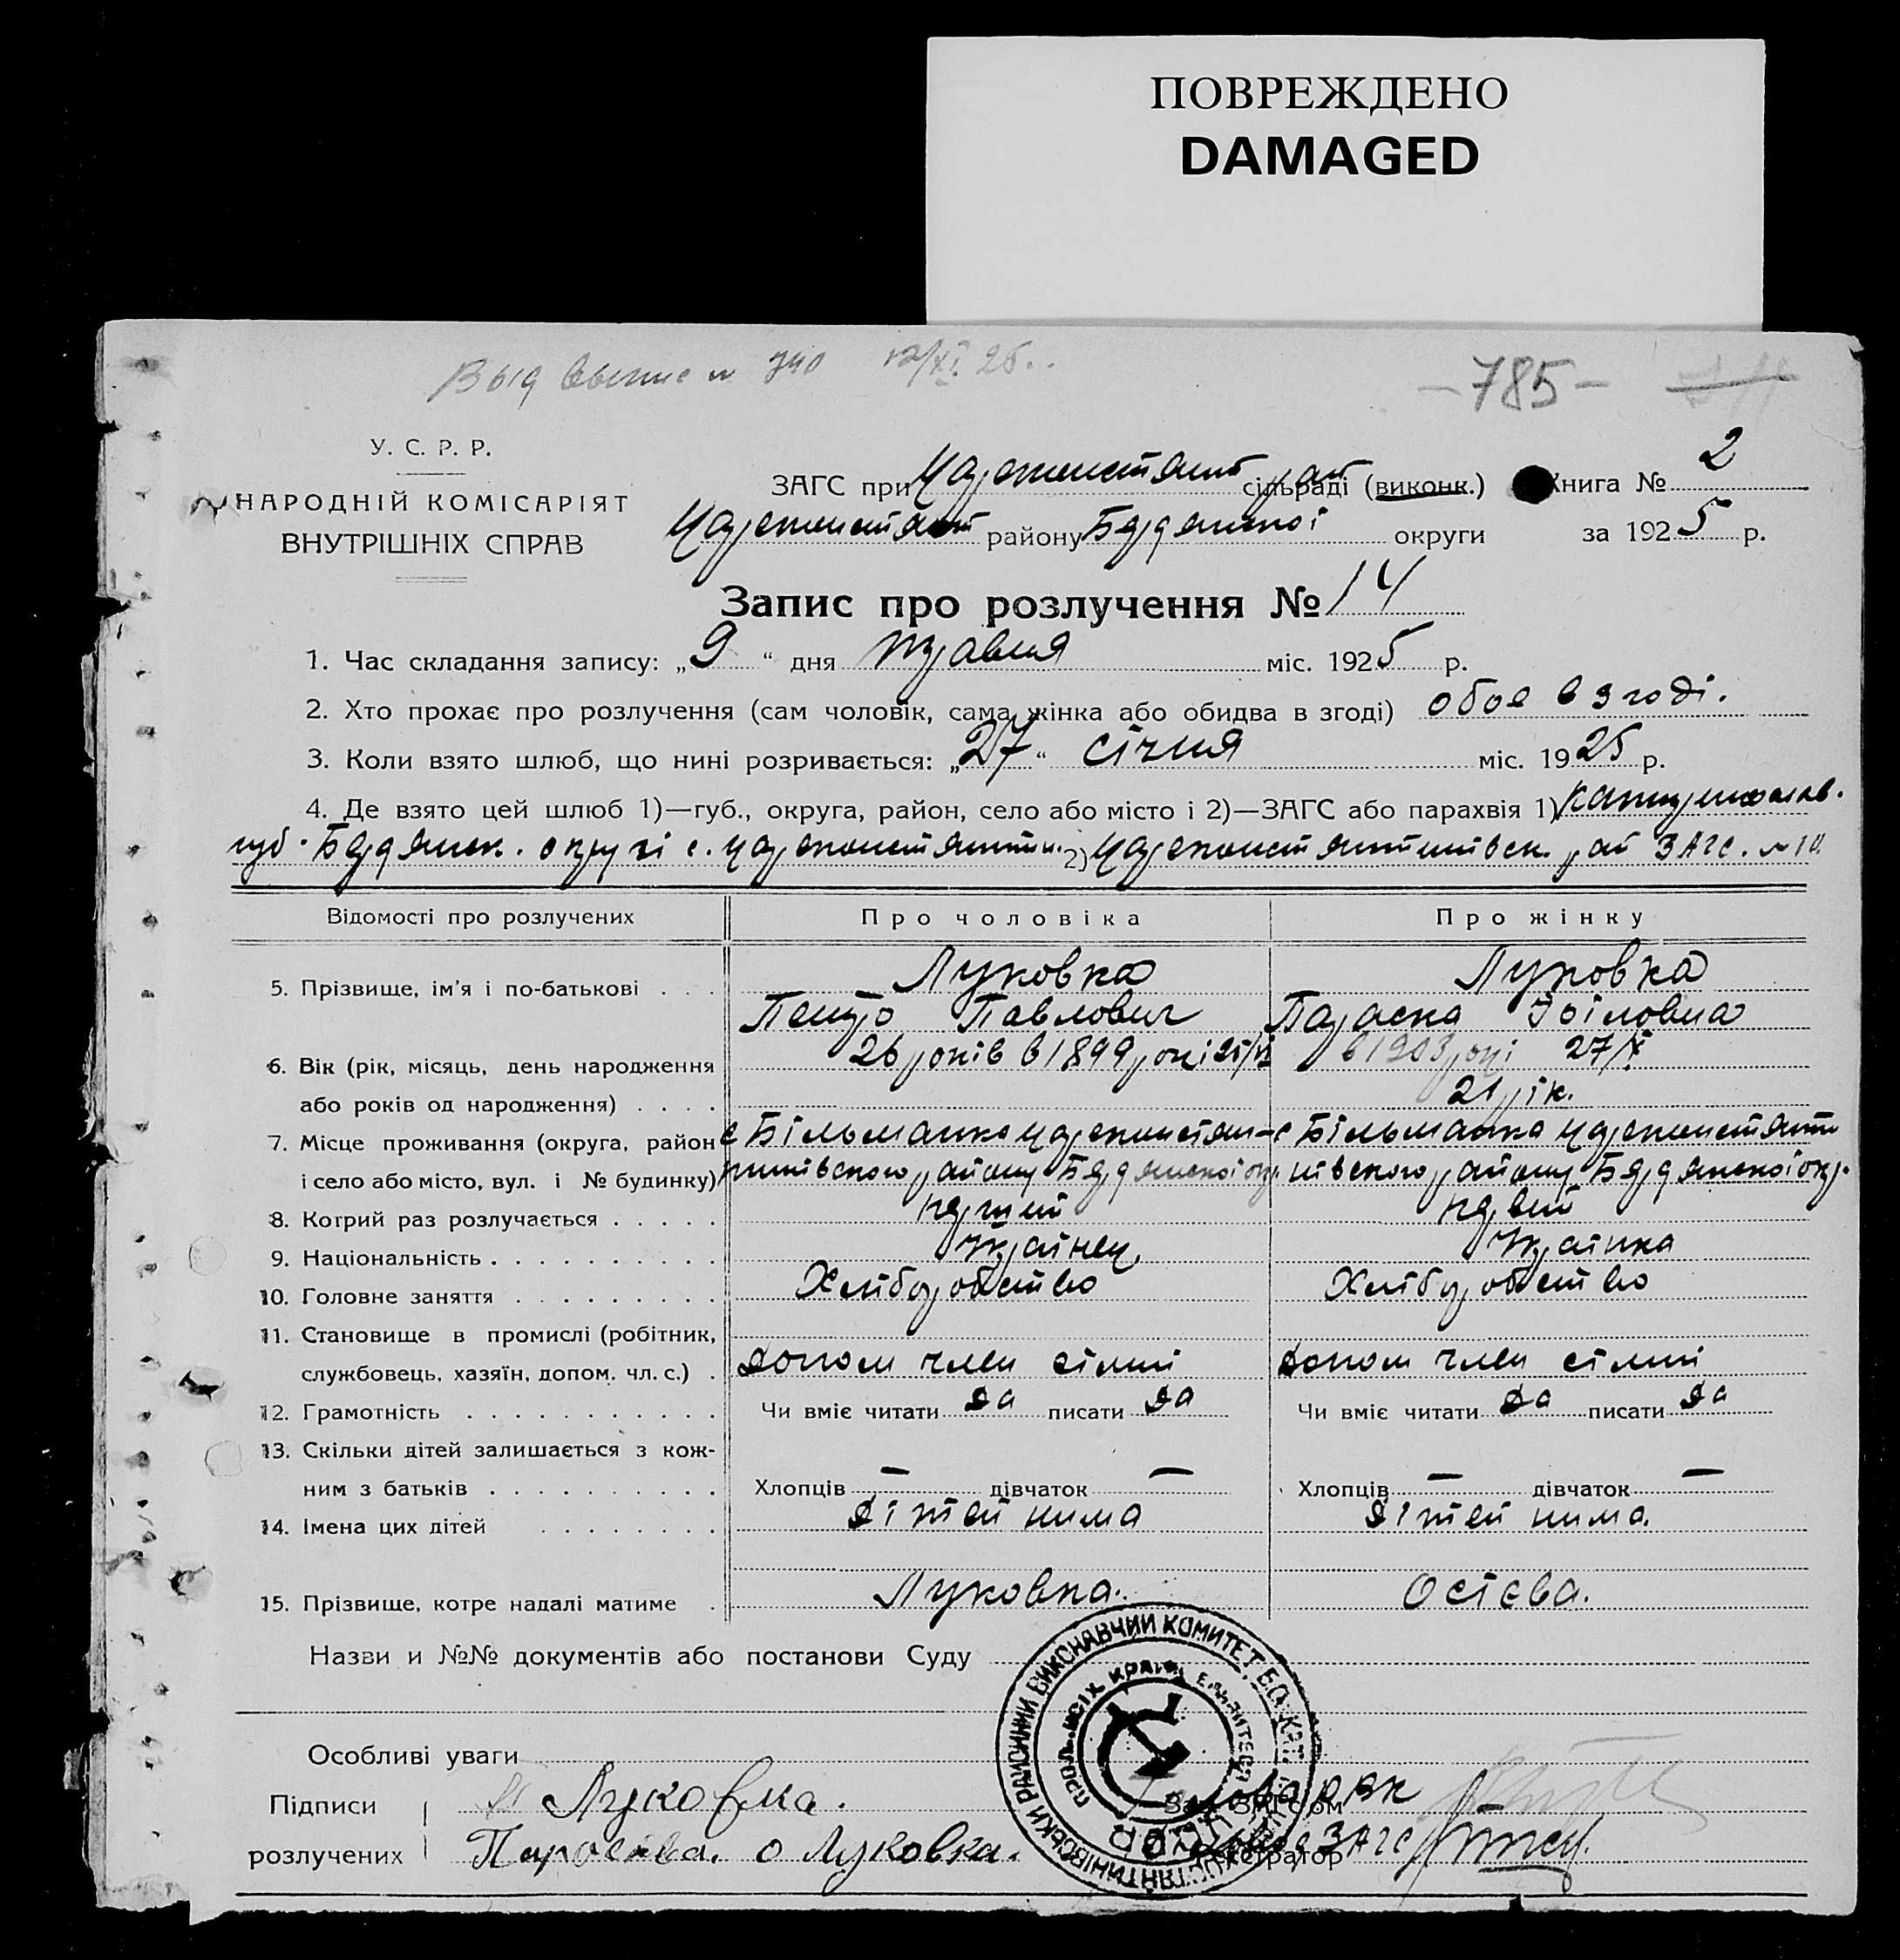 ПОВРЕЖДЕНО
DAMAGED
Выд выпис № 740 12/XI 25..
-785-
У. С. Р. Р.
НАРОДНІЙ КОМІСАРІЯТ
ВНУТРІШНІХ СПРАВ
ЗАГС при Цареконстянт рай сільраді (виконк.) Книга № 2
Цареконстянт району Бердянської округи за 1925 р.
Запис про розлучення № 14
1. Час складання запису: „9“ дня травня міс. 1925 р.
2. Хто прохає про розлучення (сам чоловік, сама жінка або обидва в згоді) обоє в згоді.
3. Коли взято шлюб, що нині розривається: „27“ січня міс. 1925 р.
4. Де взято цей шлюб 1)—губ., округа, район, село або місто і 2)—ЗАГС або парахвія 1) Катеринослав.
губ. Бердянск. округі с. Цареконстянтин. 2) Цареконстянтинівск. рай ЗАГС. № 10
Відомості про розлучених Про чоловіка Про жінку
5. Прізвище, ім'я і по-батькові . . . Луковка Луковка
Петро Павлович Параска
6. Вік (рік, місяць, день народження 26 років в 1899 році в 1903 році 27/X
або років од народження) . . . . 21 рік.
7. Місце проживання (округа, район с Більманка Цареконстян- с Більманка Цареконстянти
і село або місто, вул. і № будинку) тинівского району Бердянскої окр. нівского району Бердянскої окр.
8. Котрий раз розлучається . . . . . первий
9. Національність . . . . . . . . . . Українец Українка
10. Головне заняття . . . . . . . . . Хліборобство Хліборобство
11. Становище в промислі (робітник,
службовець, хазяїн, допом. чл. с.) . допом член сімпі допом член сімпі
12. Грамотність . . . . . . . . . . . Чи вміє читати да писати да Чи вміє читати да писати да
13. Скільки дітей залишається з кож-
ним з батьків . . . . . . . . . . Хлопців — дівчаток — Хлопців — дівчаток —
14. Імена цих дітей . . . . . . . дітей нима дітей нима.
15. Прізвище, котре надалі матиме . Луковка. Остєва.
Назви и №№ документів або постанови Суду
Особливі уваги
Підписи Луковка.
розлучених Параскева. о Луковка.
Зав. ЗАГС'ом
Реєстратор ЗАГС
РАЙОННИЙ ВИКОНАВЧИЙ КОМИТЕТ
ПРОЛ. ВСІХ КРАЇН ЄДНАЙТЕСЯ
УСРР